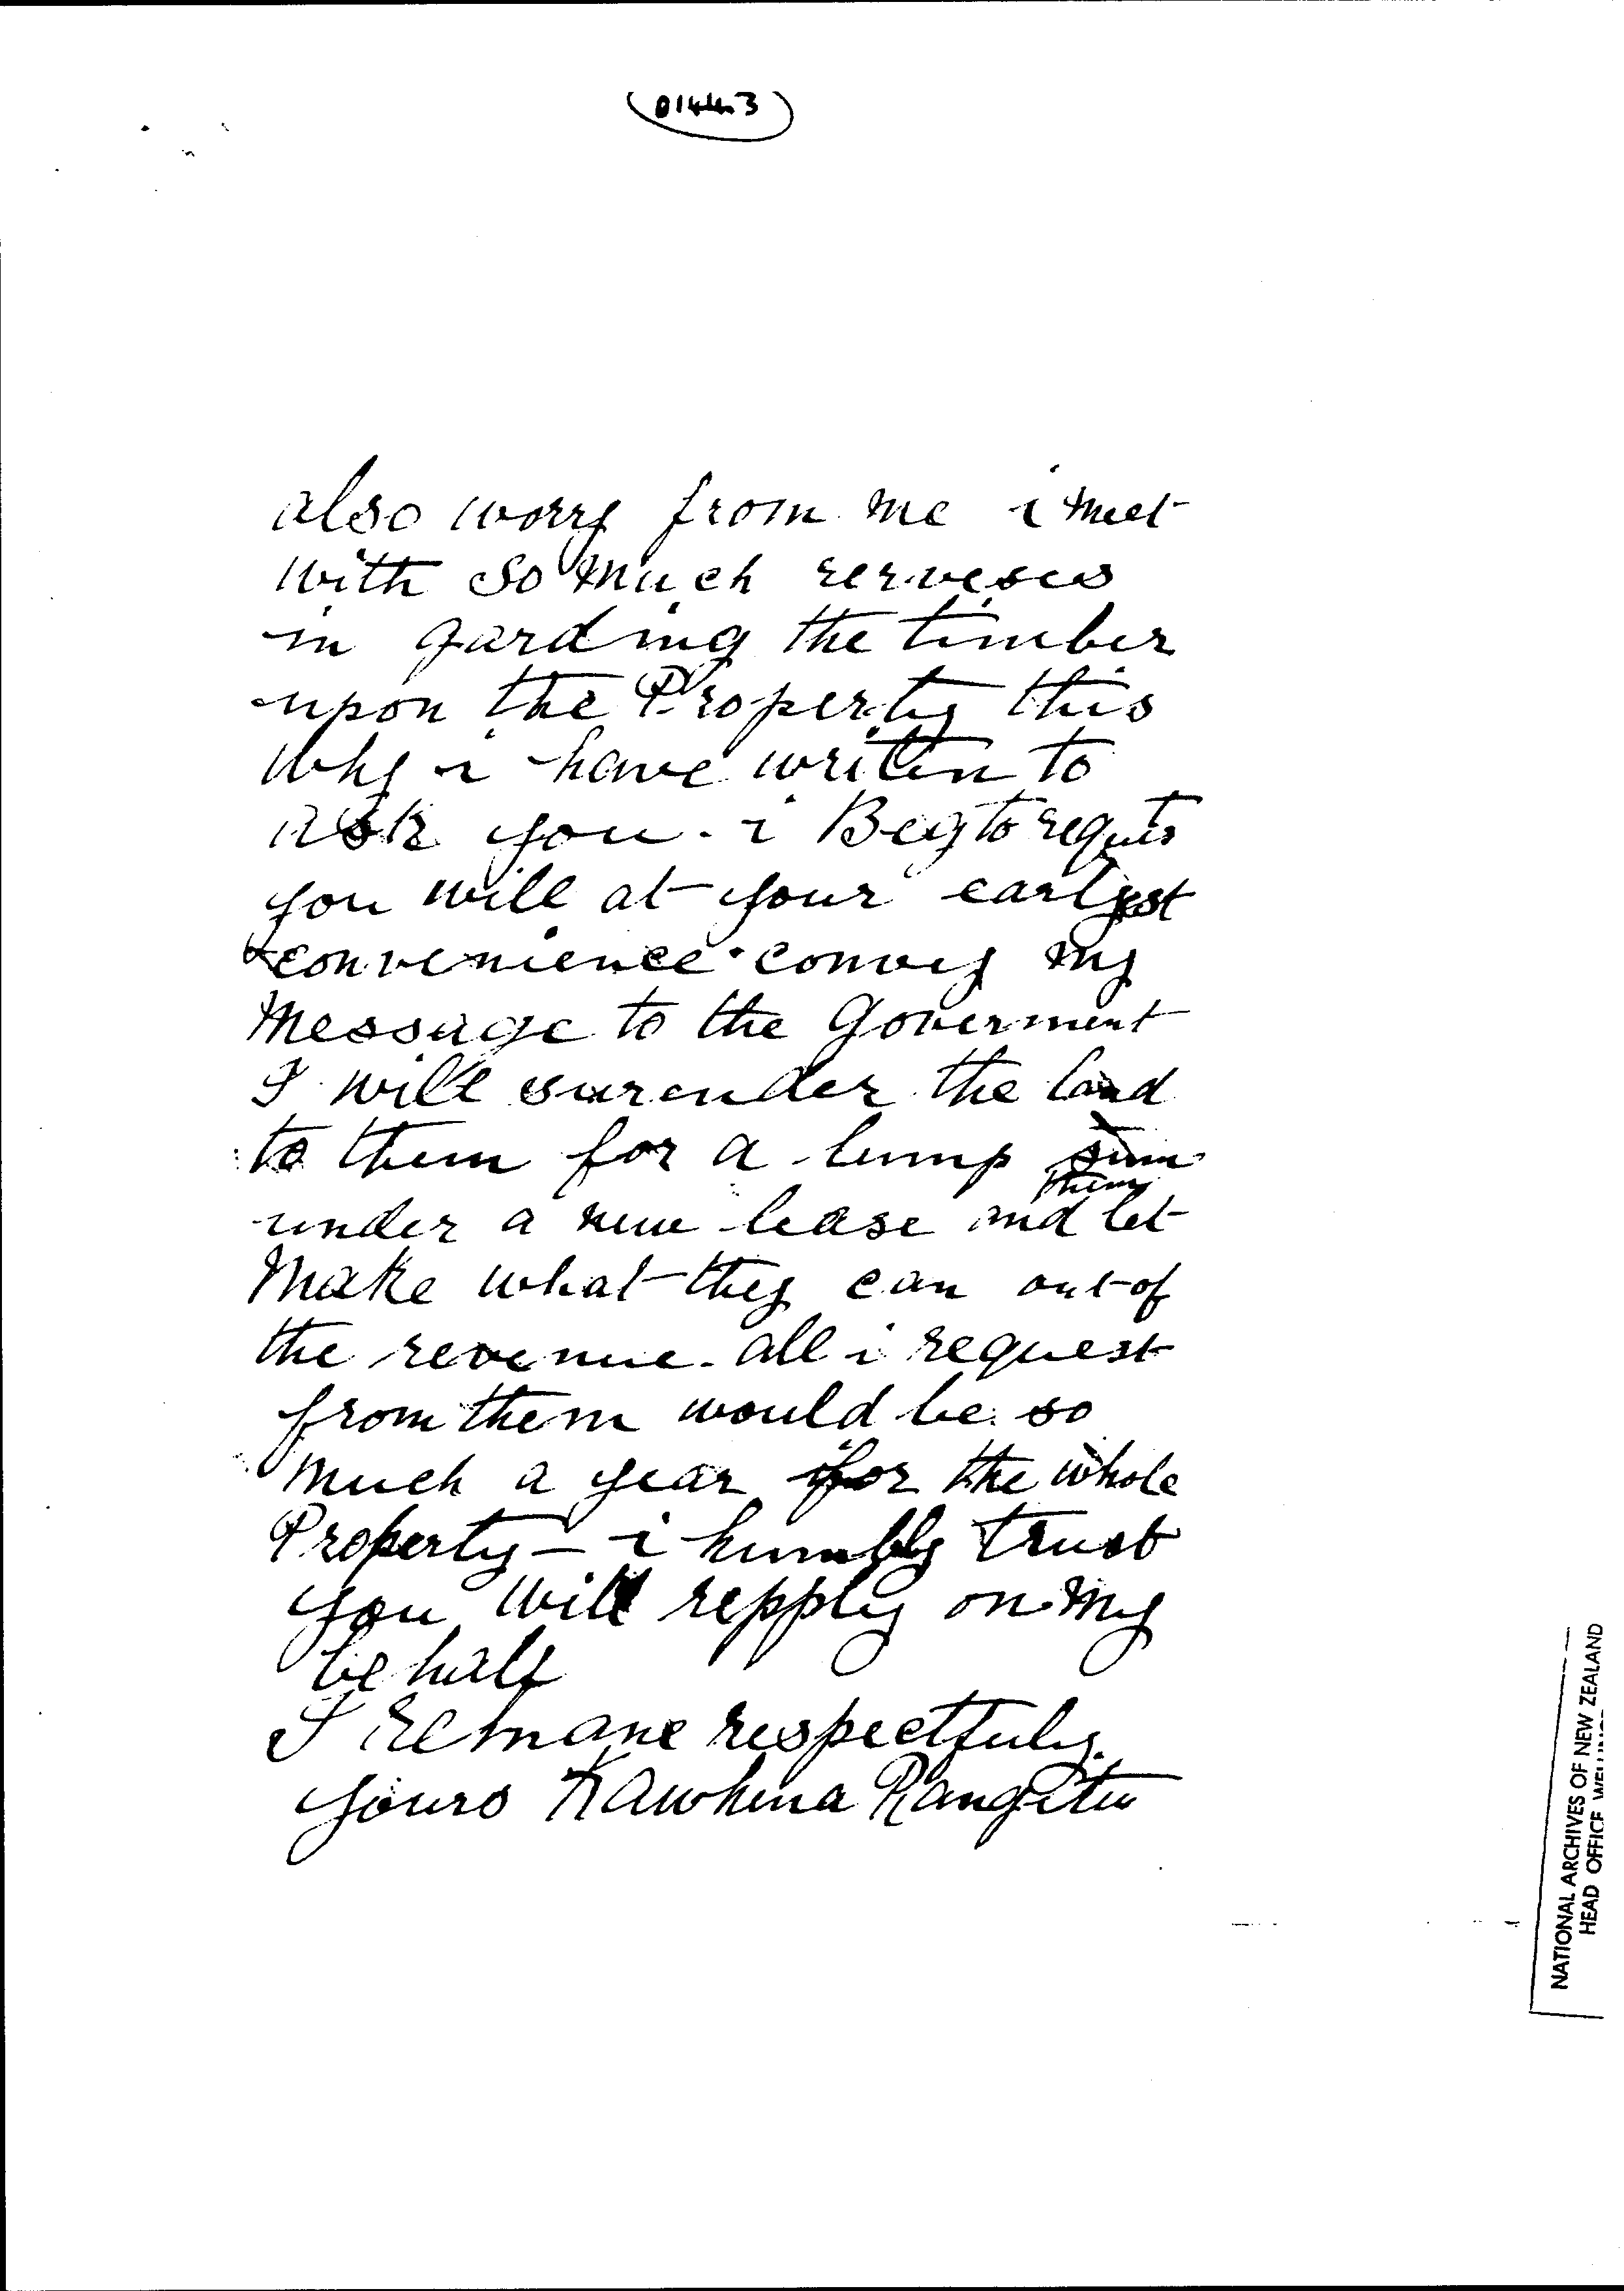 01443
also worry from me i meet
with so much rerveses
in garding the timber
upon the Property this
why i have writen to
ask you. i Beg to requts
you will at your earlyest
convenience convey my
message to the Goverment
I will surender the land
to them for a lump sum
under a new lease and let them
make what they can out of
the revenue. all i request
from them would be so
much a year for the whole
Property – i humbly trust
you will repply on my
behalf
I remane respectfuly
yours Kawhena Rangitu
NATIONAL ARCHIVES OF NEW ZEALAND
HEAD OFFICE